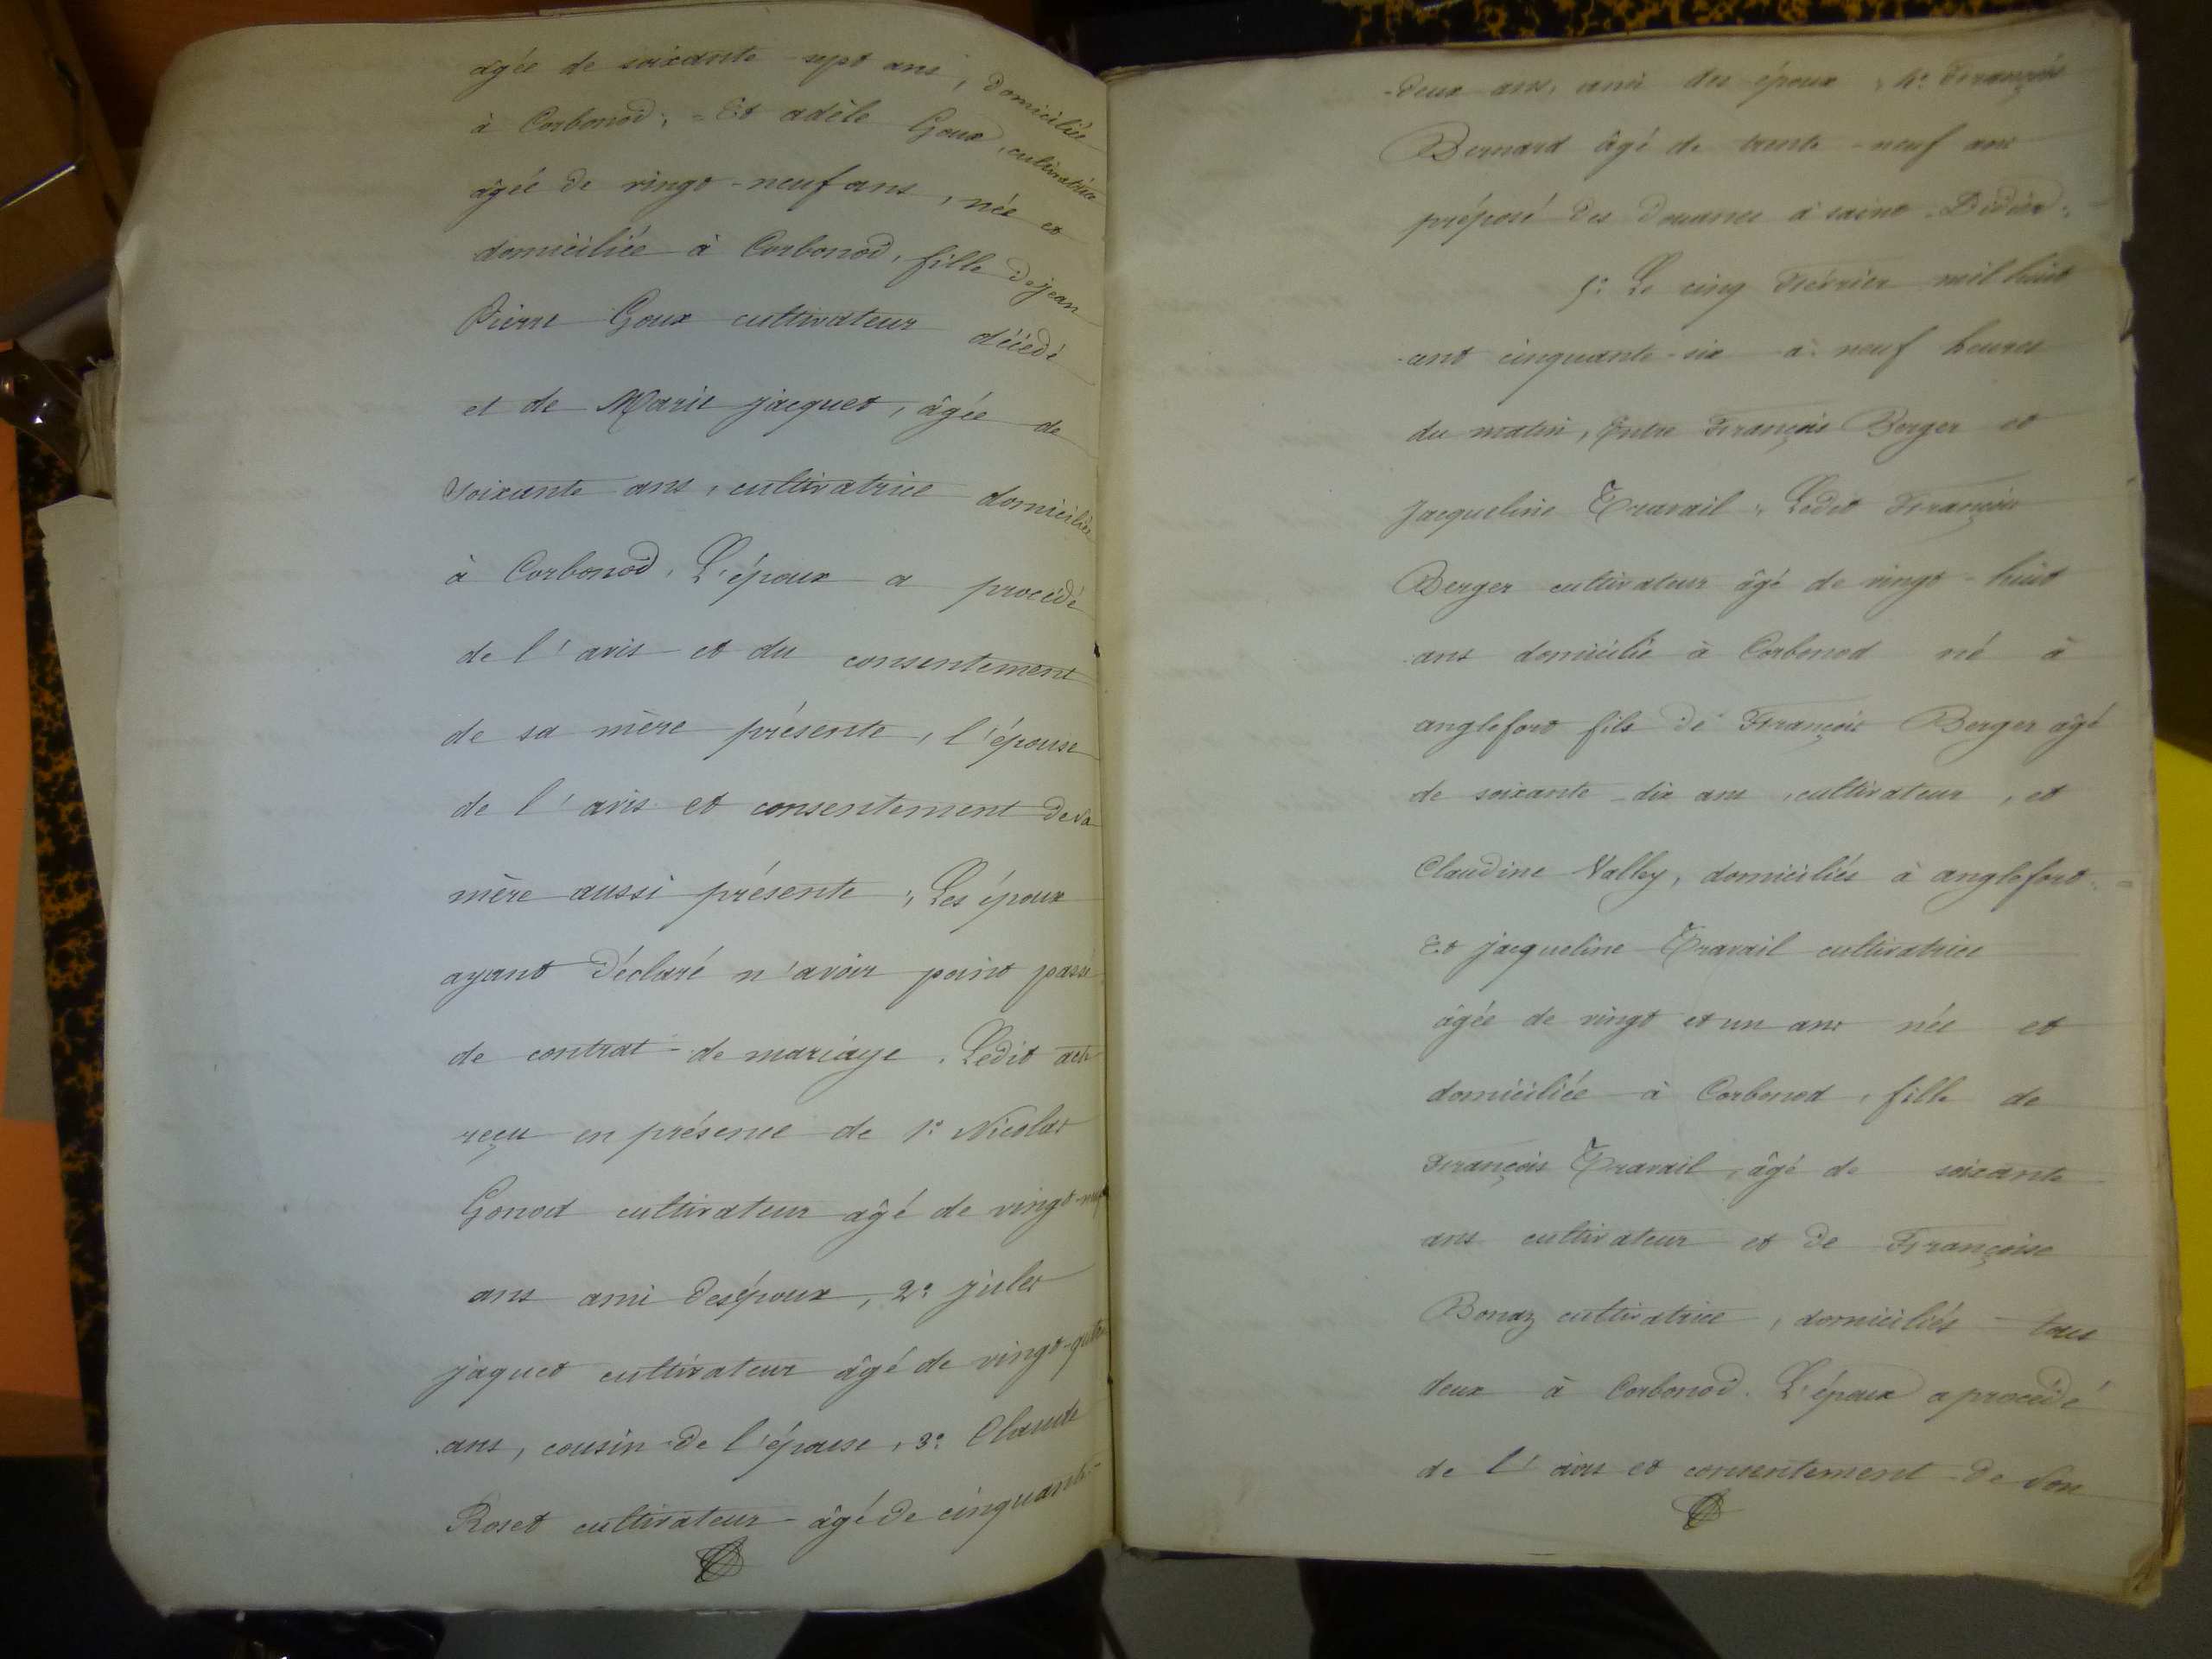 âgée de soixante sept ans, domiciliée
à Corbonod; = Et adèle Goux, cultivatrice
âgée de vingt-neuf ans, née et
domiciliée à Corbonod, fille de jean
Pierre Goux cultivateur décédé
et de Marie jacquet, âgée de
soixante ans, cultivatrice domiciliée
à Corbonod, L'époux a procédé
de l'avis et du consentement
de sa mère présente, l'épouse
de l'avis et consentement de sa
mère aussi présente; Les époux
ayant déclaré n'avoir point passé
de contrat de mariage. Ledit acte
reçu en présence de 1° Nicolas
Gonod cultivateur âgé de vingt-neuf
ans ami des époux, 2° jules
jaquet cultivateur âgé de vingt-quatre
ans, cousin de l'épouse, 3° Claude
Roset cultivateur âgé de cinquante-
-deux ans, ami des époux, 4° François
Bernard âgé de trente-neuf ans
préposé des Douanes à saint-Didier;
5° Le cinq Février mil huit
-cent cinquante-six à neuf heures
du matin, Entre François Berger et
Jacqueline Travail; Ledit François
Berger cultivateur âgé de vingt-huit
ans domicilié à Corbonod né à
anglefort fils de François Berger âgé
de soixante-dix ans, cultivateur, et
Claudine Valley, domiciliés à anglefort. =
Et jacqueline Travail cultivatrice
âgée de vingt et un ans née et
domiciliée à Corbonod, fille de
François Travail, âgé de soixante
ans cultivateur et de Françoise
Bonaz cultivatrice, domiciliés tous
deux à Corbonod. L'époux a procédé
de l'avis et consentement de son